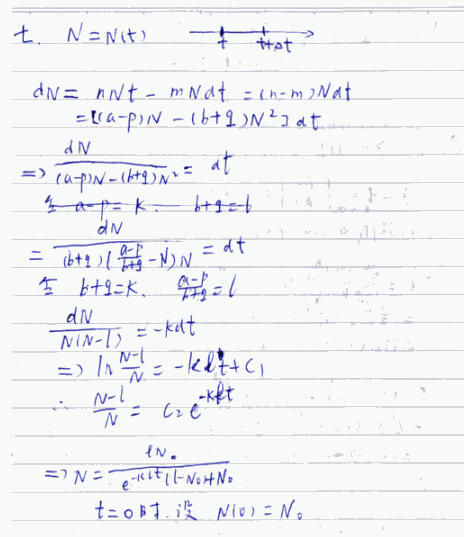 t. N=N(t) t t+Δt
dN= nNt - mNdt =(n-m)Ndt
=[(a-p)N-(b+q)N²]dt
=> dN/((a-p)N-(b+q)N²) = dt
令 a-p=k. b+q=l
= dN/((b+q)((a-p)/(b+q)-N)N) = dt
令 b+q=k. (a-p)/(b+q)=l
dN/(N(N-l)) = -kdt
=> ln (N-l)/N = -klt+C₁
∴ (N-l)/N = C₂e^(-klt)
=> N= lN₀/(e^(-klt)(l-N₀)+N₀)
t=0时.设 N(0)=N₀